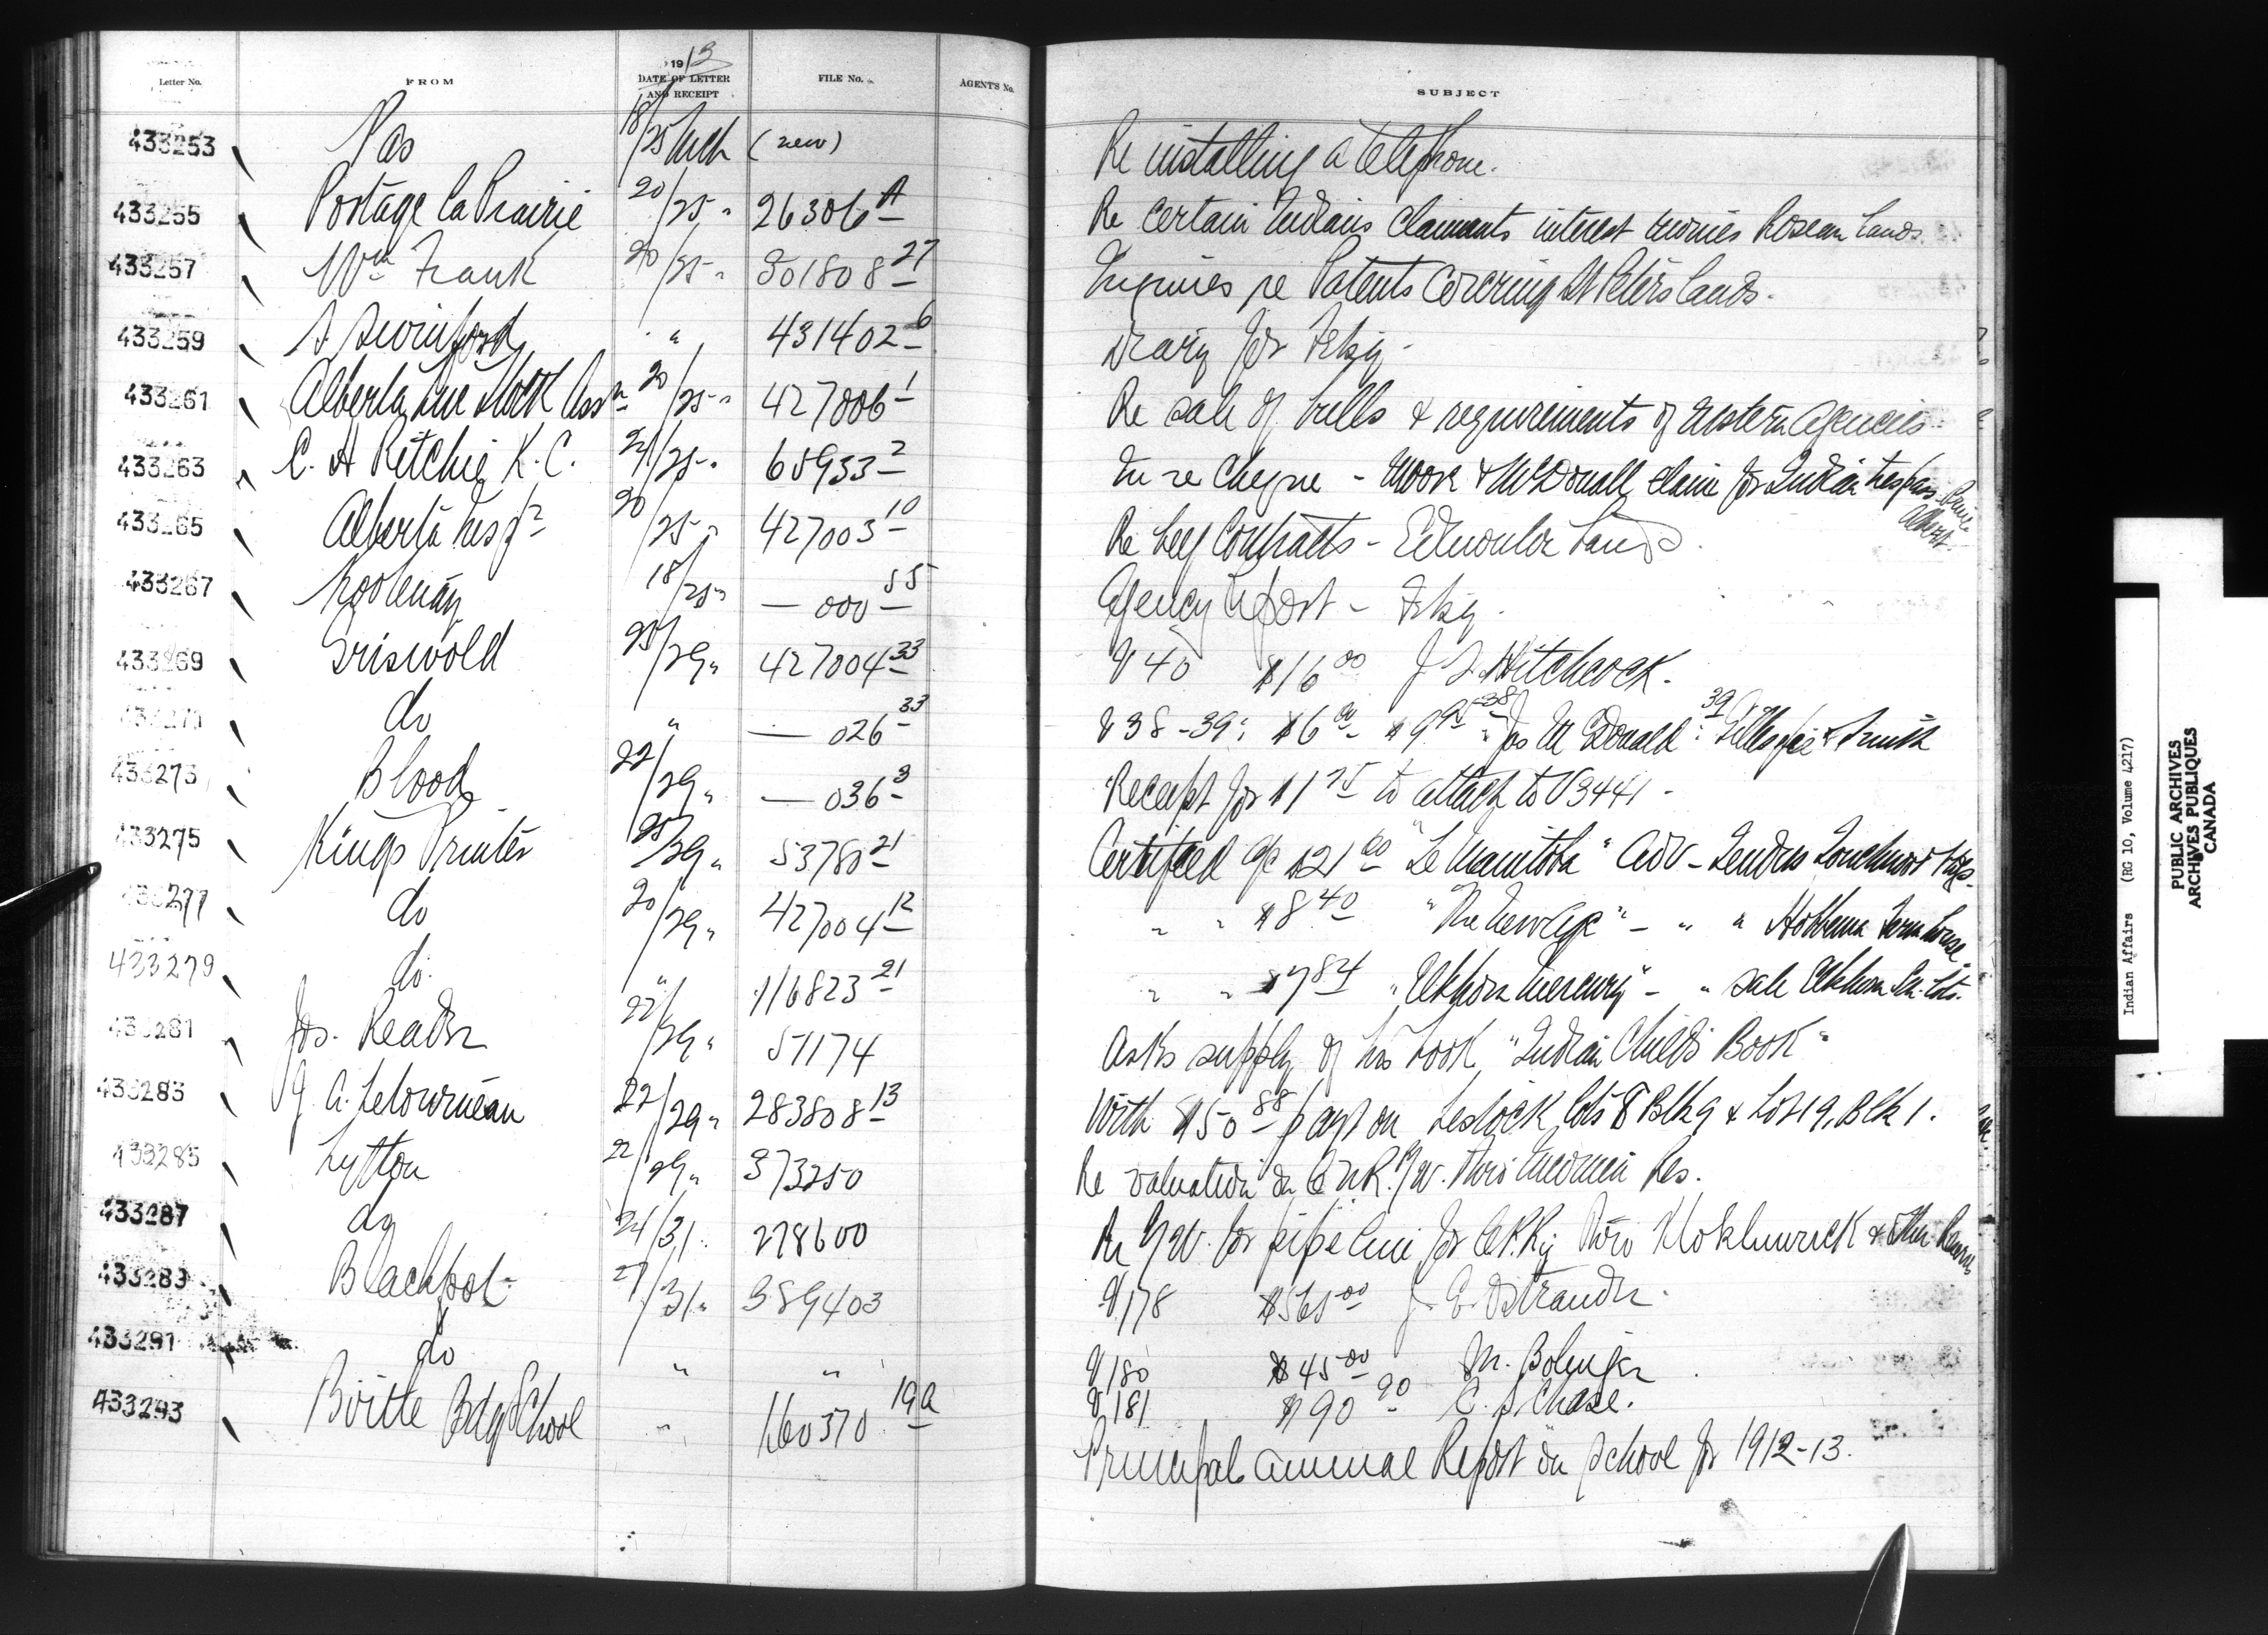 Letter No. FROM 1913 DATE OF LETTER AND RECEIPT FILE No. AGENT'S No. SUBJECT
433253 Pas 18/25 Mch (new) Re installing a telephone.
433255 Portage la Prairie 20/25 " 26306 A Re certain Indians claimants interest monies Roseau Lands
433257 Wm Frank 20/25 " 301808 27 Inquiries re Patents covering St Peters lands.
433259 S Swinford " 431402 6 Diary for Feby -
433261 Alberta Live Stock Assn 20/25 " 427006 1 Re sale of bulls & requirements of western Agencies
433263 C. H Ritchie K.C. 21/25 " 65933 2 In re Cheyne - Moore & McDonall claim for Indian trespass Prince Albert
433265 Alberta Insp 20/25 " 427003 10 Re beef contracts - Edmonton
433267 Kootenay 18/25 " — 000 55 Agency report - Feby.
433269 Griswold 25/29 " 427004 33 V 40 $16 00 J Hitchcock.
do " — 026 33 V 38-39: $6 00 $9 95 38 Jos McDonald : 39 Gillespie & Smith
433273 Blood 22/29 " — 036 3 Receipt for $1 25 to attach to V3441 -
433275 Kings Printer 25/29 " 53780 21 Certified a/c $21 00 "Le Manitoba" Adv - Tenders Touchwood Hosp.
433277 do 20/29 " 427004 12 " " $8 40 "The New Age" - " " Hobbema Farm house
433279 do. " 116823 21 " " $7 84 "Elkhorn Mercury" - " sale Elkhorn Sch. Lots.
433281 Jos. Reader 22/29 " 51174 Asks supply of his book "Indian Child's Book"
433283 J. A. Letourneau 22/29 " 283808 13 With $50 88 payt on Lestock lots 8 Blk 9 & Lot 19, Blk 1.
433285 Lytton 22/29 " 373250 Re valuation on C.N.R. R/W. thro Res.
433287 do 24/31 " 278600 Re R/W. for pipe line for C.P.Ry thro Klokluwuck & other Reserves
433289 Blackfoot 27/31 " 389403 V 178 $565 00 J. E. Ostrander.
433291 do " " V 180 $45 00 M. Bolinger
V 181 $90 90 C. S Chase.
433293 Birtle Bdg School " 160370 19a Principals annual Report on school for 1912-13.
Indian Affairs (RG 10, Volume 4217)
PUBLIC ARCHIVES
ARCHIVES PUBLIQUES
CANADA